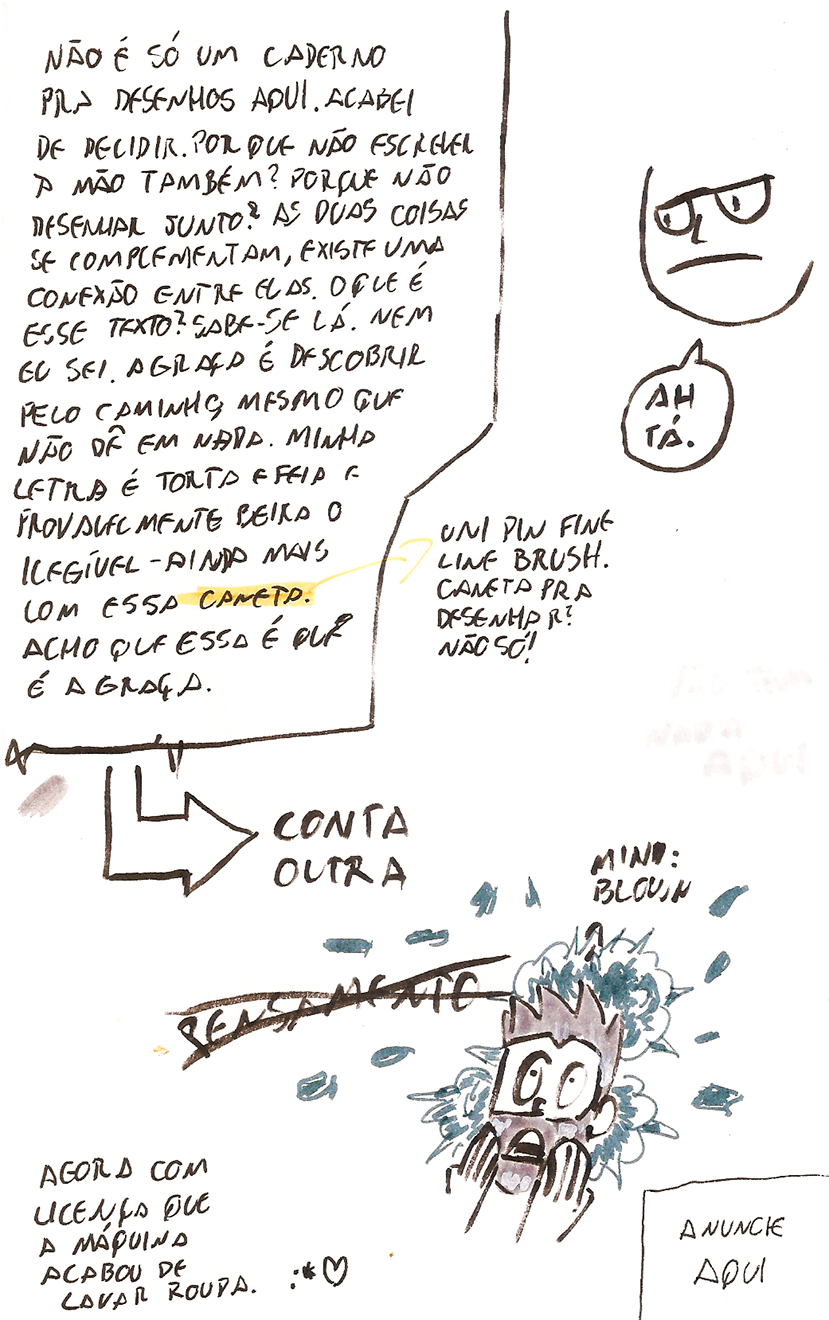 NÃO É SÓ UM CADERNO
PRA DESENHOS AQUI. ACABEI
DE DECIDIR. POR QUE NÃO ESCREVER
A MÃO TAMBÉM? PORQUE NÃO
DESENHAR JUNTO? AS DUAS COISAS
SE COMPLEMENTAM, EXISTE UMA
CONEXÃO ENTRE ELAS. O QUE É
ESSE TEXTO? SABE-SE LÁ. NEM
EU SEI. A GRAÇA É DESCOBRIR
PELO CAMINHO, MESMO QUE
NÃO DÊ EM NADA. MINHA
LETRA É TORTA E FEIA E
PROVAVELMENTE BEIRA O
ILEGÍVEL - AINDA MAIS
COM ESSA CANETA.
ACHO QUE ESSA É QUE
É A GRAÇA.
AH
TÁ.
UNI PIN FINE
LINE BRUSH.
CANETA PRA
DESENHAR?
NÃO SÓ!
CONTA
OUTRA
MIND:
BLOWN
PENSAMENTO
AGORA COM
LICENÇA QUE
A MÁQUINA
ACABOU DE
LAVAR ROUPA. :*♡
ANUNCIE
AQUI